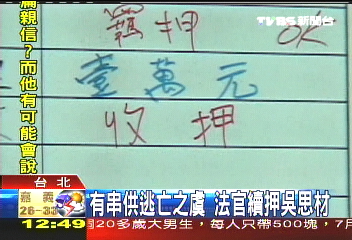 TVBS 新聞台
羈押 OK
壹萬元
收押
扁親信?而他有可能會說
台北
嘉義
26-33
有串供逃亡之虞 法官續押吳思材
12:49
國20多歲大男生,每人只帶500塊,7月